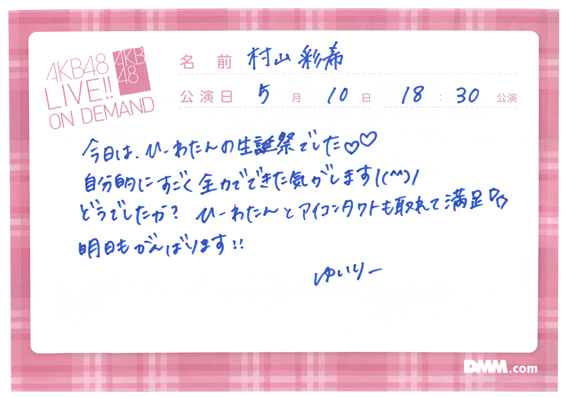 AKB48
LIVE!!
ON DEMAND
AKB
48
名 前 村山 彩希
公演日 5 月 10 日 18 : 30 公演
今日は、ひーわたんの生誕祭でした♡♡
自分的にすごく全力でできた気がします!(^^)!
どうでしたか? ひーわたんとアイコンタクトも取れて満足
明日もがんばります!!
ゆいりー
DMM.com